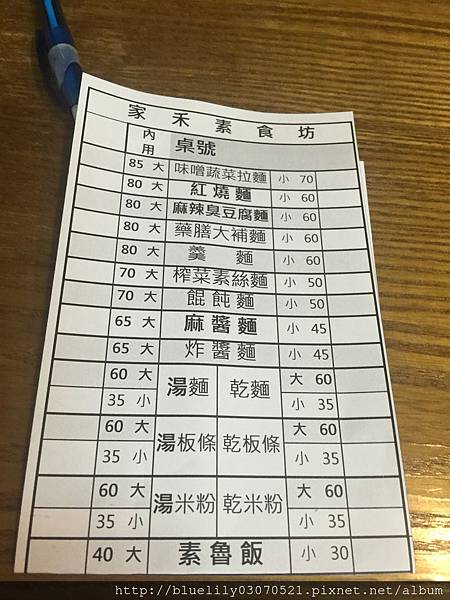 家禾素食坊
內用 桌號
85 大 味噌蔬菜拉麵 小 70
80 大 紅燒麵 小 60
80 大 麻辣臭豆腐麵 小 60
80 大 藥膳大補麵 小 60
80 大 羹麵 小 60
70 大 榨菜素絲麵 小 50
70 大 餛飩麵 小 50
65 大 麻醬麵 小 45
65 大 炸醬麵 小 45
60 大 湯麵 乾麵 大 60
35 小 小 35
60 大 湯板條 乾板條 大 60
35 小 小 35
60 大 湯米粉 乾米粉 大 60
35 小 小 35
40 大 素魯飯 小 30
http://bluelily03070521.pixnet.net/album